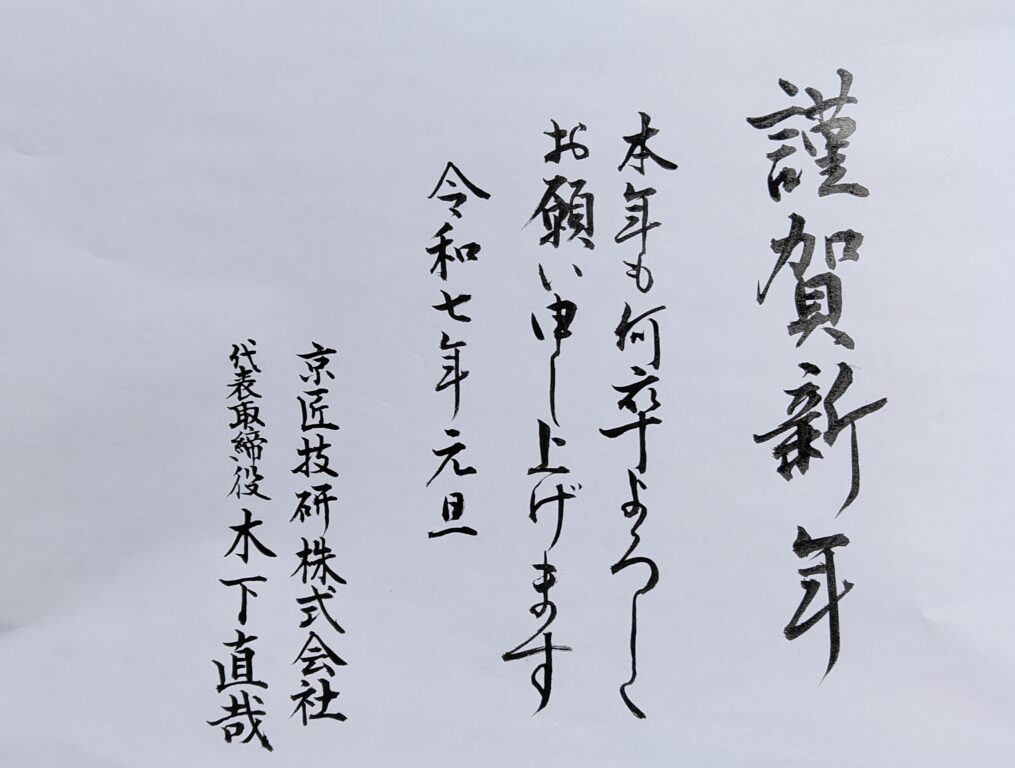 謹賀新年
本年も何卒よろしく
お願い申し上げます
令和七年元旦
京匠技研株式会社
代表取締役木下直哉